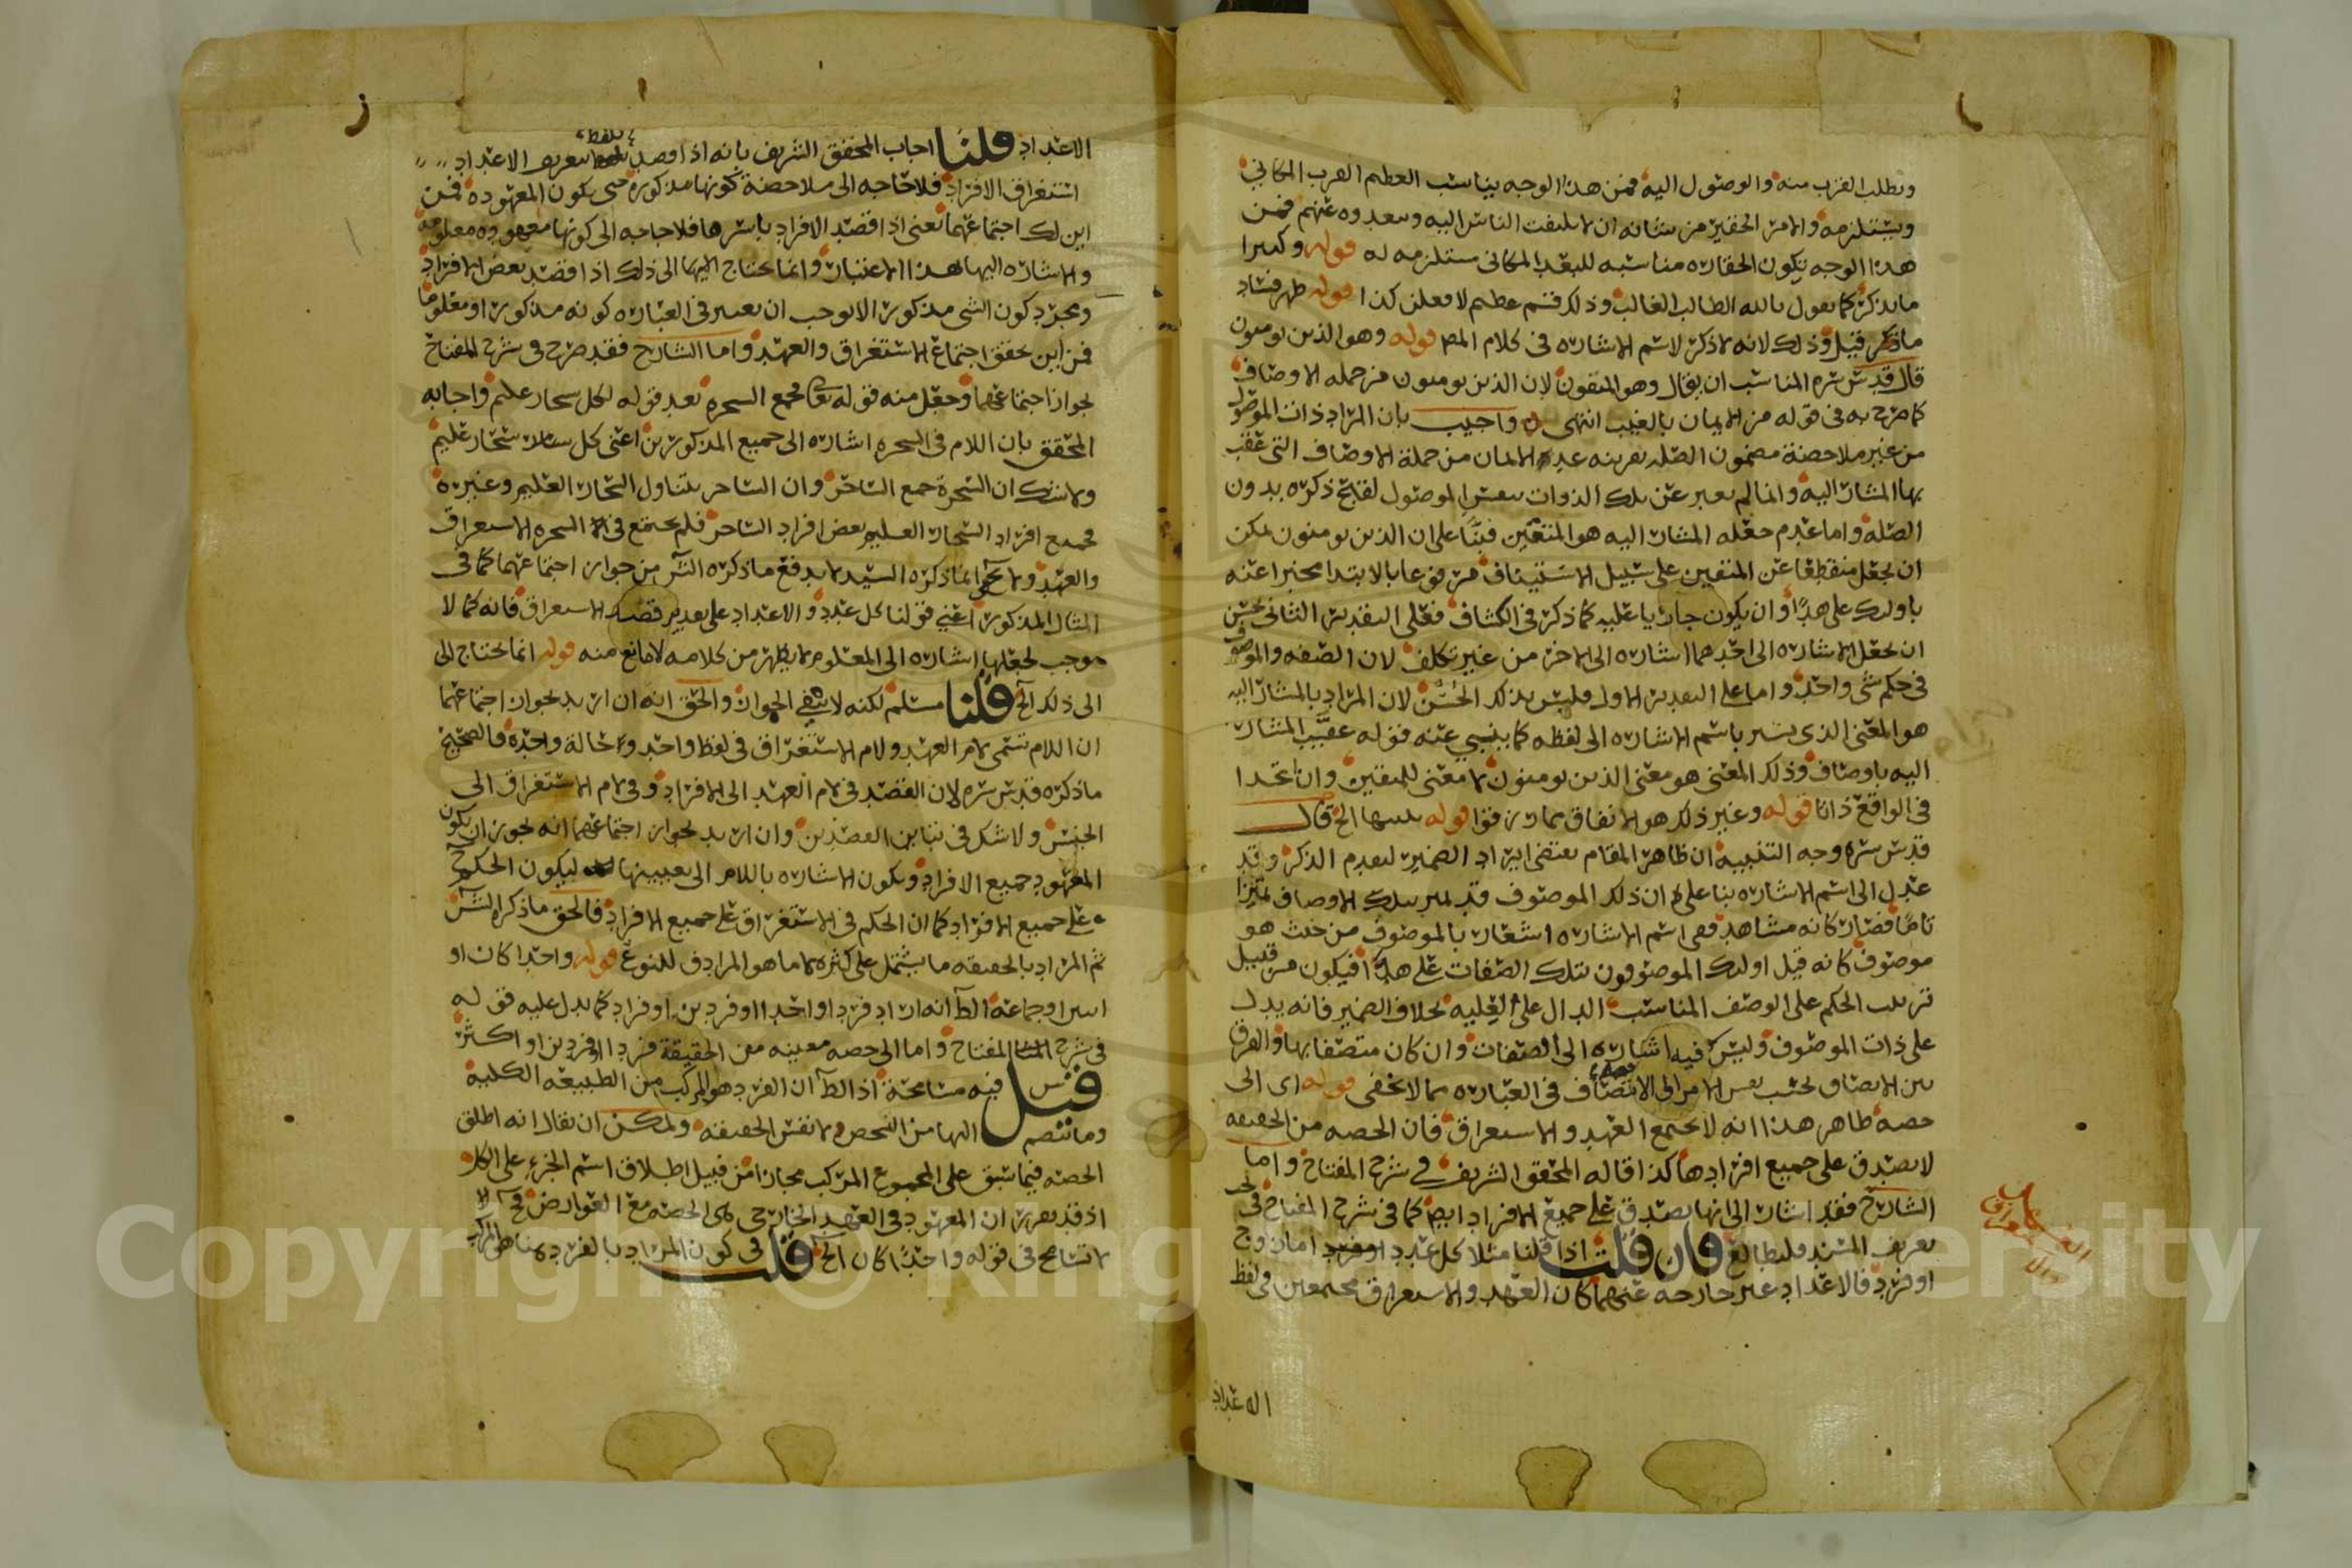 ويطلب القرب منه والوصول اليه فمن هذا الوجه يناسب العظم القرب المكاني
ويستلزمه والامر الحقير من شانه ان لا يلتفت الناس اليه ويبعدوه عنهم فمن
هذا الوجه يكون الحقارة مناسبه للبعد المكانى مستلزمه له قوله وكثيرا
ما يذكر كما يقول بالله الطالب الغالب وذلك قسم عظيم لافعلن كذا قوله ظهر فساد
ما ذكر قيل وذلك لانه لا ذكر لاسم الاشاره فى كلام المص قوله وهو الذين يومنون
قال قدس سره المناسب ان يقال وهو المتقون لان الذين يومنون من جمله الاوصاف
كما صرح به فى قوله من الايمان بالغيب انتهى واجيب بان المراد ذات الموصول
من غير ملاحضة مضمون الصله بقرينه عده الايمان من جملة الاوصاف التى عقب
بها المشار اليه وانما لم يعبر عن تلك الذوات بنفس الموصول لقبح ذكره بدون
الصله واما عدم جعله المشار اليه هو المتقين فبنا على ان الذين يومنون يمكن
ان يجعل منقطعا عن المتقين على سبيل الاستيناف مرفوعا بالابتدا مخبرا عنه
باولئك على هدا وان يكون جاريا عليه كما ذكر فى الكشاف فعلى التقدير الثانى يحسن
ان يجعل الاشاره الى احدهما اشاره الى الاخر من غير تكلف لان الصفه والموصوف
فى حكم شى واحد واما على التقدير الاول فليس بذلك الحسن لان المراد بالمشار اليه
هو المعنى الذى يشير باسم الاشاره الى لفظه كما ينبي عنه قوله عقيب المشار
اليه باوصاف وذلك المعنى هو معنى الذين يومنون لا معنى للمتقين وان اتحدا
فى الواقع ذاتا قوله وغير ذلك هو الانفاق مما رزقوا قوله تنبيها الخ قال
قدس سره وجه التنبيه ان ظاهر المقام يقتضى ايراد الضمير لتقدم الذكر وقد
عدل الى اسم الاشاره بنا على ان ذلك الموصوف قد تميز بتلك الاوصاف تميزا
تاما فصار كانه مشاهد ففى اسم الاشاره اشعار بالموصوف من حيث هو
موصوف كانه قيل اولئك الموصوفون بتلك الصفات على هدا فيكون من قبيل
ترتب الحكم على الوصف المناسب الدال على العليه بخلاف الضمير فانه يدل
على ذات الموصوف وليس فيه اشاره الى الصفات وان كان متصفا بها والفرق
بين الاتصاف بحسب نفس الامر الى الاتصاف فى العباره مما لا يخفى قوله اى الى
حصه ظاهر هذا انه لا يجتمع العهد والاستغراق فان الحصه من الحقيقه
لا يصدق على جميع افرادها كذا قاله المحقق الشريف في شرح المفتاح واما
الشارح فقد اشار الى انها يصدق على جميع الافراد ايضا كما فى شرح المفتاح فى
تعريف المسند فليطالع فان قلت اذا قلنا مثلا كل عدد امازوج
اوفرد فالاعداد غير خارجه عنهما كان العهد والاستغراق مجتمعين فى لفظ
الاعداد
الاعداد قلنا اجاب المحقق الشريف بانه اذا قصد بلفظ تعريف الاعداد
استغراق الافراد فلا حاجه الى ملاحضة كونها مذكورة حتى يكون المعهوده فمن
اين لك اجتماعهما نعنى اذا قصد الافراد باسرها فلا حاجه الى كونها معهوده معلومه
والاشاره اليها بهذا الاعتبار وانما يحتاج اليها الى ذلك اذا قصد بعض الافراد
ومجرد كون الشى مذكورا لا يوجب ان يعتبر فى العباره كونه مذكورا او معلوما
فمن اين تحقق اجتماع الاستغراق والعهد واما الشارح فقد صرح فى شرح المفتاح
بجواز اجتماعهما وجعل منه قوله تعا فجمع السحره بعد قوله بكل سحار عليم واجابه
المحقق بان اللام فى السحره اشاره الى جميع المذكورين اعنى كل سحار عليم
ولا شك ان السحرة جمع الساحر وان الساحر يتناول السحار العليم وغيره
فجميع افراد السحار العليم بعض افراد الساحر فلم يجتمع فى السحره الاستغراق
والعهد ولا يخفى ان ما ذكره السيد لا يدفع ما ذكره الش من جواز اجتماعهما كما فى
المثال المذكور اعنى قولنا كل عدد والاعداد على تقدير قصد الاستغراق فانه كما لا
موجب لجعلها اشاره الى المعلوم لا يظهر من كلامه لا مانع منه قوله انما يحتاج الى
الى ذلك الخ قلنا مسلم لكنه لا ينفى الجواز والحق انه ان اريد بجواز اجتماعهما
ان اللام تسمى لام العهد ولام الاستغراق فى لفظ واحد وحالة واحده فالصحيح
ما ذكره قدس سره لان القصد فى لام العهد الى الافراد وفى لام الاستغراق الى
الجنس ولا شك فى تباين القصدين وان اريد بجواز اجتماعهما انه يجوز ان يكون
المعهود جميع الافراد ويكون الاشاره باللام الى تعيينها ليكون الحكم ح
على جميع الافراد كما ان الحكم فى الاستغراق على جميع الافراد فالحق ما ذكره الش
ثم المراد بالحقيقه ما يشتمل على كثره لا ما هو المرادف للنوع قوله واحدا كان او
اثنين او جماعة الظ انه اراد فردا واحدا او فردين او افراد كما يدل عليه قوله
فى شرح المفتاح واما الى حصه معينه من الحقيقة فردا او فردين او اكثر
قيل فيه مسامحة اذ الظ ان الفرد هو المركب من الطبيعه الكلية
وما ينضم اليها من التشخص لا نفس الحقيقه ويمكن ان يقال انه اطلق
الحصه فيما سبق على المجموع المركب مجازا من قبيل اطلاق اسم الجزء على الكل
اذ قد تقرر ان المعهود فى العهد الخارجى هى الحصه مع العوارض فح
لا تسامح فى قوله واحدا كان الخ قلت فى كون المراد بالفرد هنا هو المركب